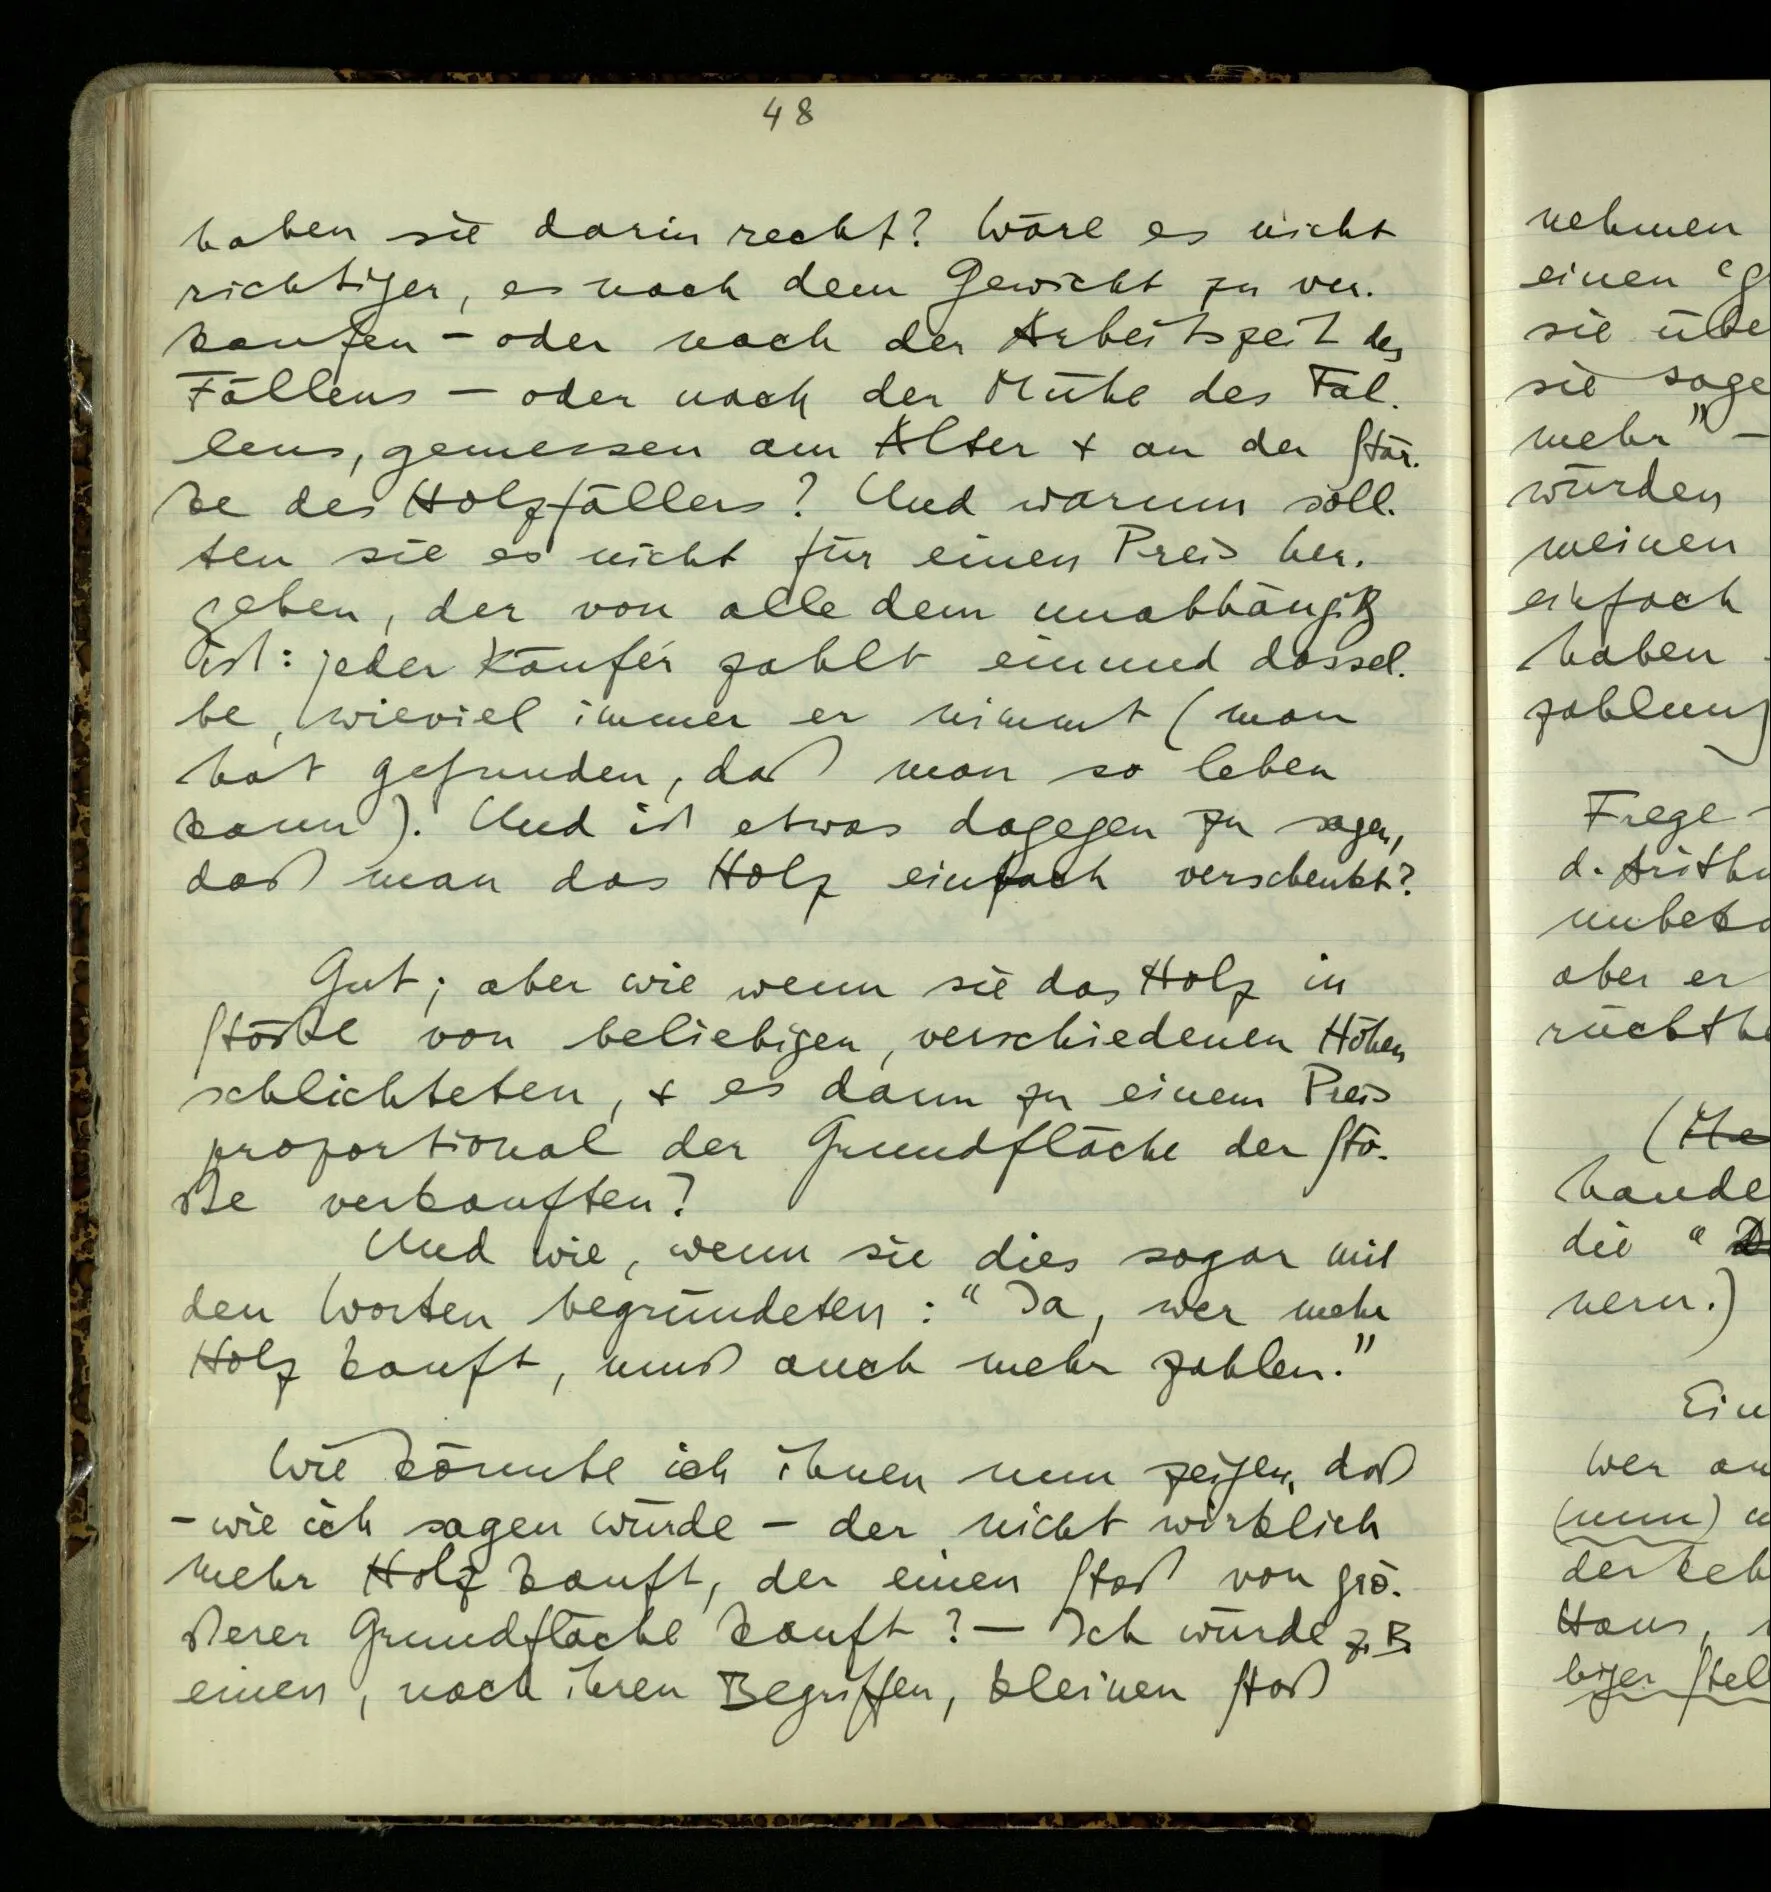 48
haben sie darin recht? Wäre es nicht
richtiger, es nach dem Gewicht zu ver-
kaufen – oder nach der Arbeitszeit des
Fällens – oder nach der Mühe des Fäl-
lens, gemessen am Alter + an der Stär-
ke des Holzfällers? Und warum soll-
ten sie es nicht für einen Preis her-
geben, der von alle dem unabhängig
ist: jeder Käufer zahlt ein und dassel-
be, wieviel immer er nimmt (man
hat gefunden, daß man so leben
kann). Und ist etwas dagegen zu sagen,
daß man das Holz einfach verschenkt?
Gut; aber wie wenn sie das Holz in
Stöße von beliebigen, verschiedenen Höhen
schlichteten, + es dann zu einem Preis
proportional der Grundfläche der Stö-
ße verkauften?
Und wie, wenn sie dies sogar mit
den Worten begründeten: “Ja, wer mehr
Holz kauft, muß auch mehr zahlen.”
Wie könnte ich ihnen nun zeigen, daß
– wie ich sagen würde – der nicht wirklich
mehr Holz kauft, der einen Stoß von grö-
ßerer Grundfläche kauft? – Ich würde z.B.
einen, nach ihren Begriffen, kleinen Stoß
nehmen
einen “g
sie übe
sie sage
mehr” –
würden
meinen
einfach
haben
zahlung
Frege
d. Arith
unbeka
aber er
rückt
(Me
hande
die “D
nern.)
Ein
Wer an
(nun)
der Leh
Haus,
biger Stel